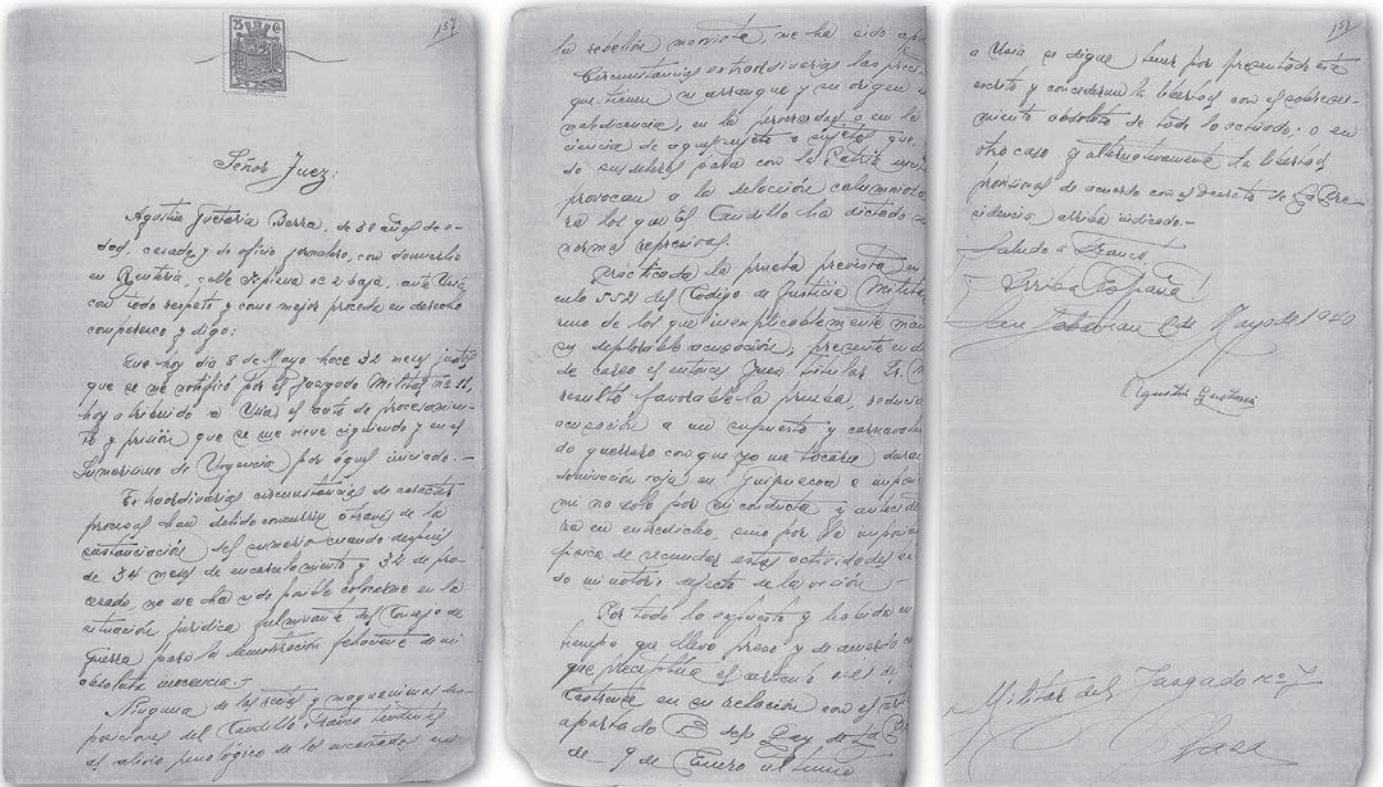 25 Cts
157
Señor Juez:
Agustin Guetaria Berra, de 38 años de e-
dad, casado y de oficio jornalero, con domicilio
en Rentería, calle 2 bajo, ante Usía
con todo respeto y como mejor proceda en derecho
comparezco y digo:
Que hoy día 8 de Mayo hace 32 meses justos
que se me notificó por el Juzgado Militar nº 11,
hoy atribuido a Usía el auto de procesamien-
to y prisión que se me viene siguiendo y en el
Sumarisimo de Urgencia por aquel iniciado.-
Extraordinarias circunstancias de caracter
procesal han debido concurrir a través de la
sustanciación del sumario cuando después
de 34 meses de encarcelamiento y 32 de pro-
cesado, no me ha sido posible colocarme en la
situación jurídica fulminante del Consejo de
Guerra para la demostración fehaciente de mi
absoluta inocencia.-
Ninguna de las y magnánimas dis-
posiciones del Caudillo Franco tendentes
al alivio penológico de los encartados en
la rebelión marxista, me ha sido ap
Circunstancias extraordinarias las
que tienen su arranque y su origen
maledicencia, en la perversidad o en la
ciencia de aquel sujeto o sujetos que,
do sus deberes para con la Patria
provocan a la delación calumniosa
ra los que El Caudillo ha dictado
normas represivas.
Practicada la prueba prevista en
culo 552 del Código de Justicia Militar
uno de los que inexplicablemente man
su deplorable acusación, presente en
de careo el entonces Juez titular Sr.
resultó favorable la prueba,
acusación a un supuesto y
do guerrero con que yo me tocara dura
dominación roja en Guipuzcoa e
mi no solo por mi conducta y antecede
ra en entredicho, sino por la
física de secundar estas actividades
do mi notorio defecto de la visión.-
Por todo lo expuesto y habida
tiempo que llevo preso y de acuerdo
que preceptúa el artículo
Castrense en su relación con el
apartado B de la Ley de la
de 9 de Enero ultimo
158
a Usía se digne tener por presentado este
escrito y concederme la libertad con el sobresei-
miento absoluto de todo lo actuado; o en
otro caso y alternativamente la libertad
provisional de acuerdo con el Decreto de La Pre-
sidencia arriba indicado.-
Saludo a Franco
¡Arriba España!
San Sebastian 8 de Mayo de 1940
Agustin Guetaria
Militar del Juzgado nº 7
Plaza